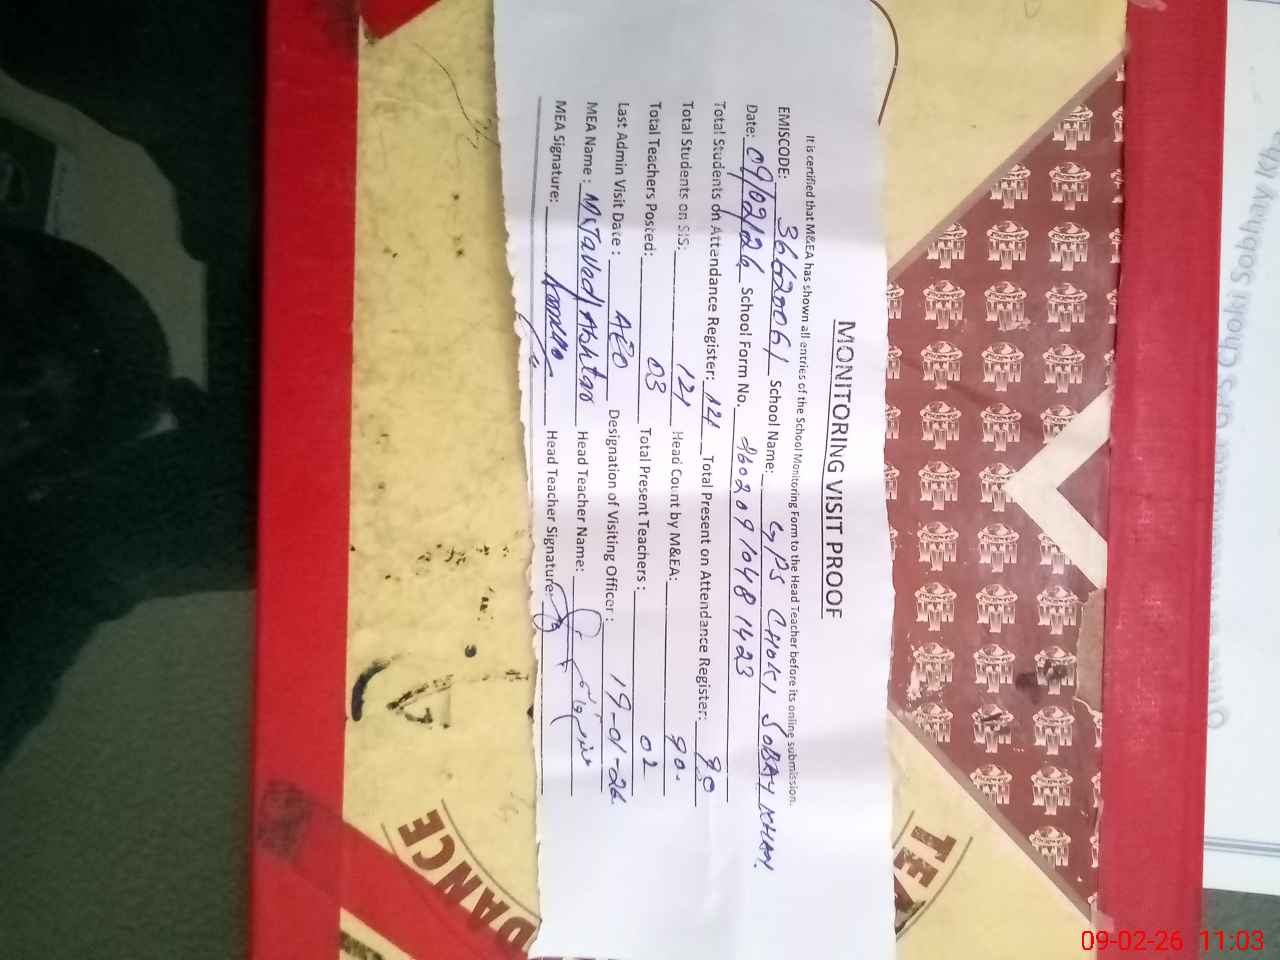 MONITORING VISIT PROOF
It is certified that M&EA has shown all entries of the School Monitoring Form to the Head Teacher before its online submission.
EMISCODE: 36620061 School Name: GPS CHOKI SOBAY KHAN.
Date: 09/02/26 School Form No. 86020910481423
Total Students on Attendance Register: 121 Total Present on Attendance Register: 90
Total Students on SIS: 121 Head Count by M&EA: 90.
Total Teachers Posted: 03 Total Present Teachers : 02
Last Admin Visit Date : AEO Designation of Visiting Officer : 19-01-26
MEA Name : Head Teacher Name:
MEA Signature: Head Teacher Signature:
DANCE
TEA
09-02-26 11:03